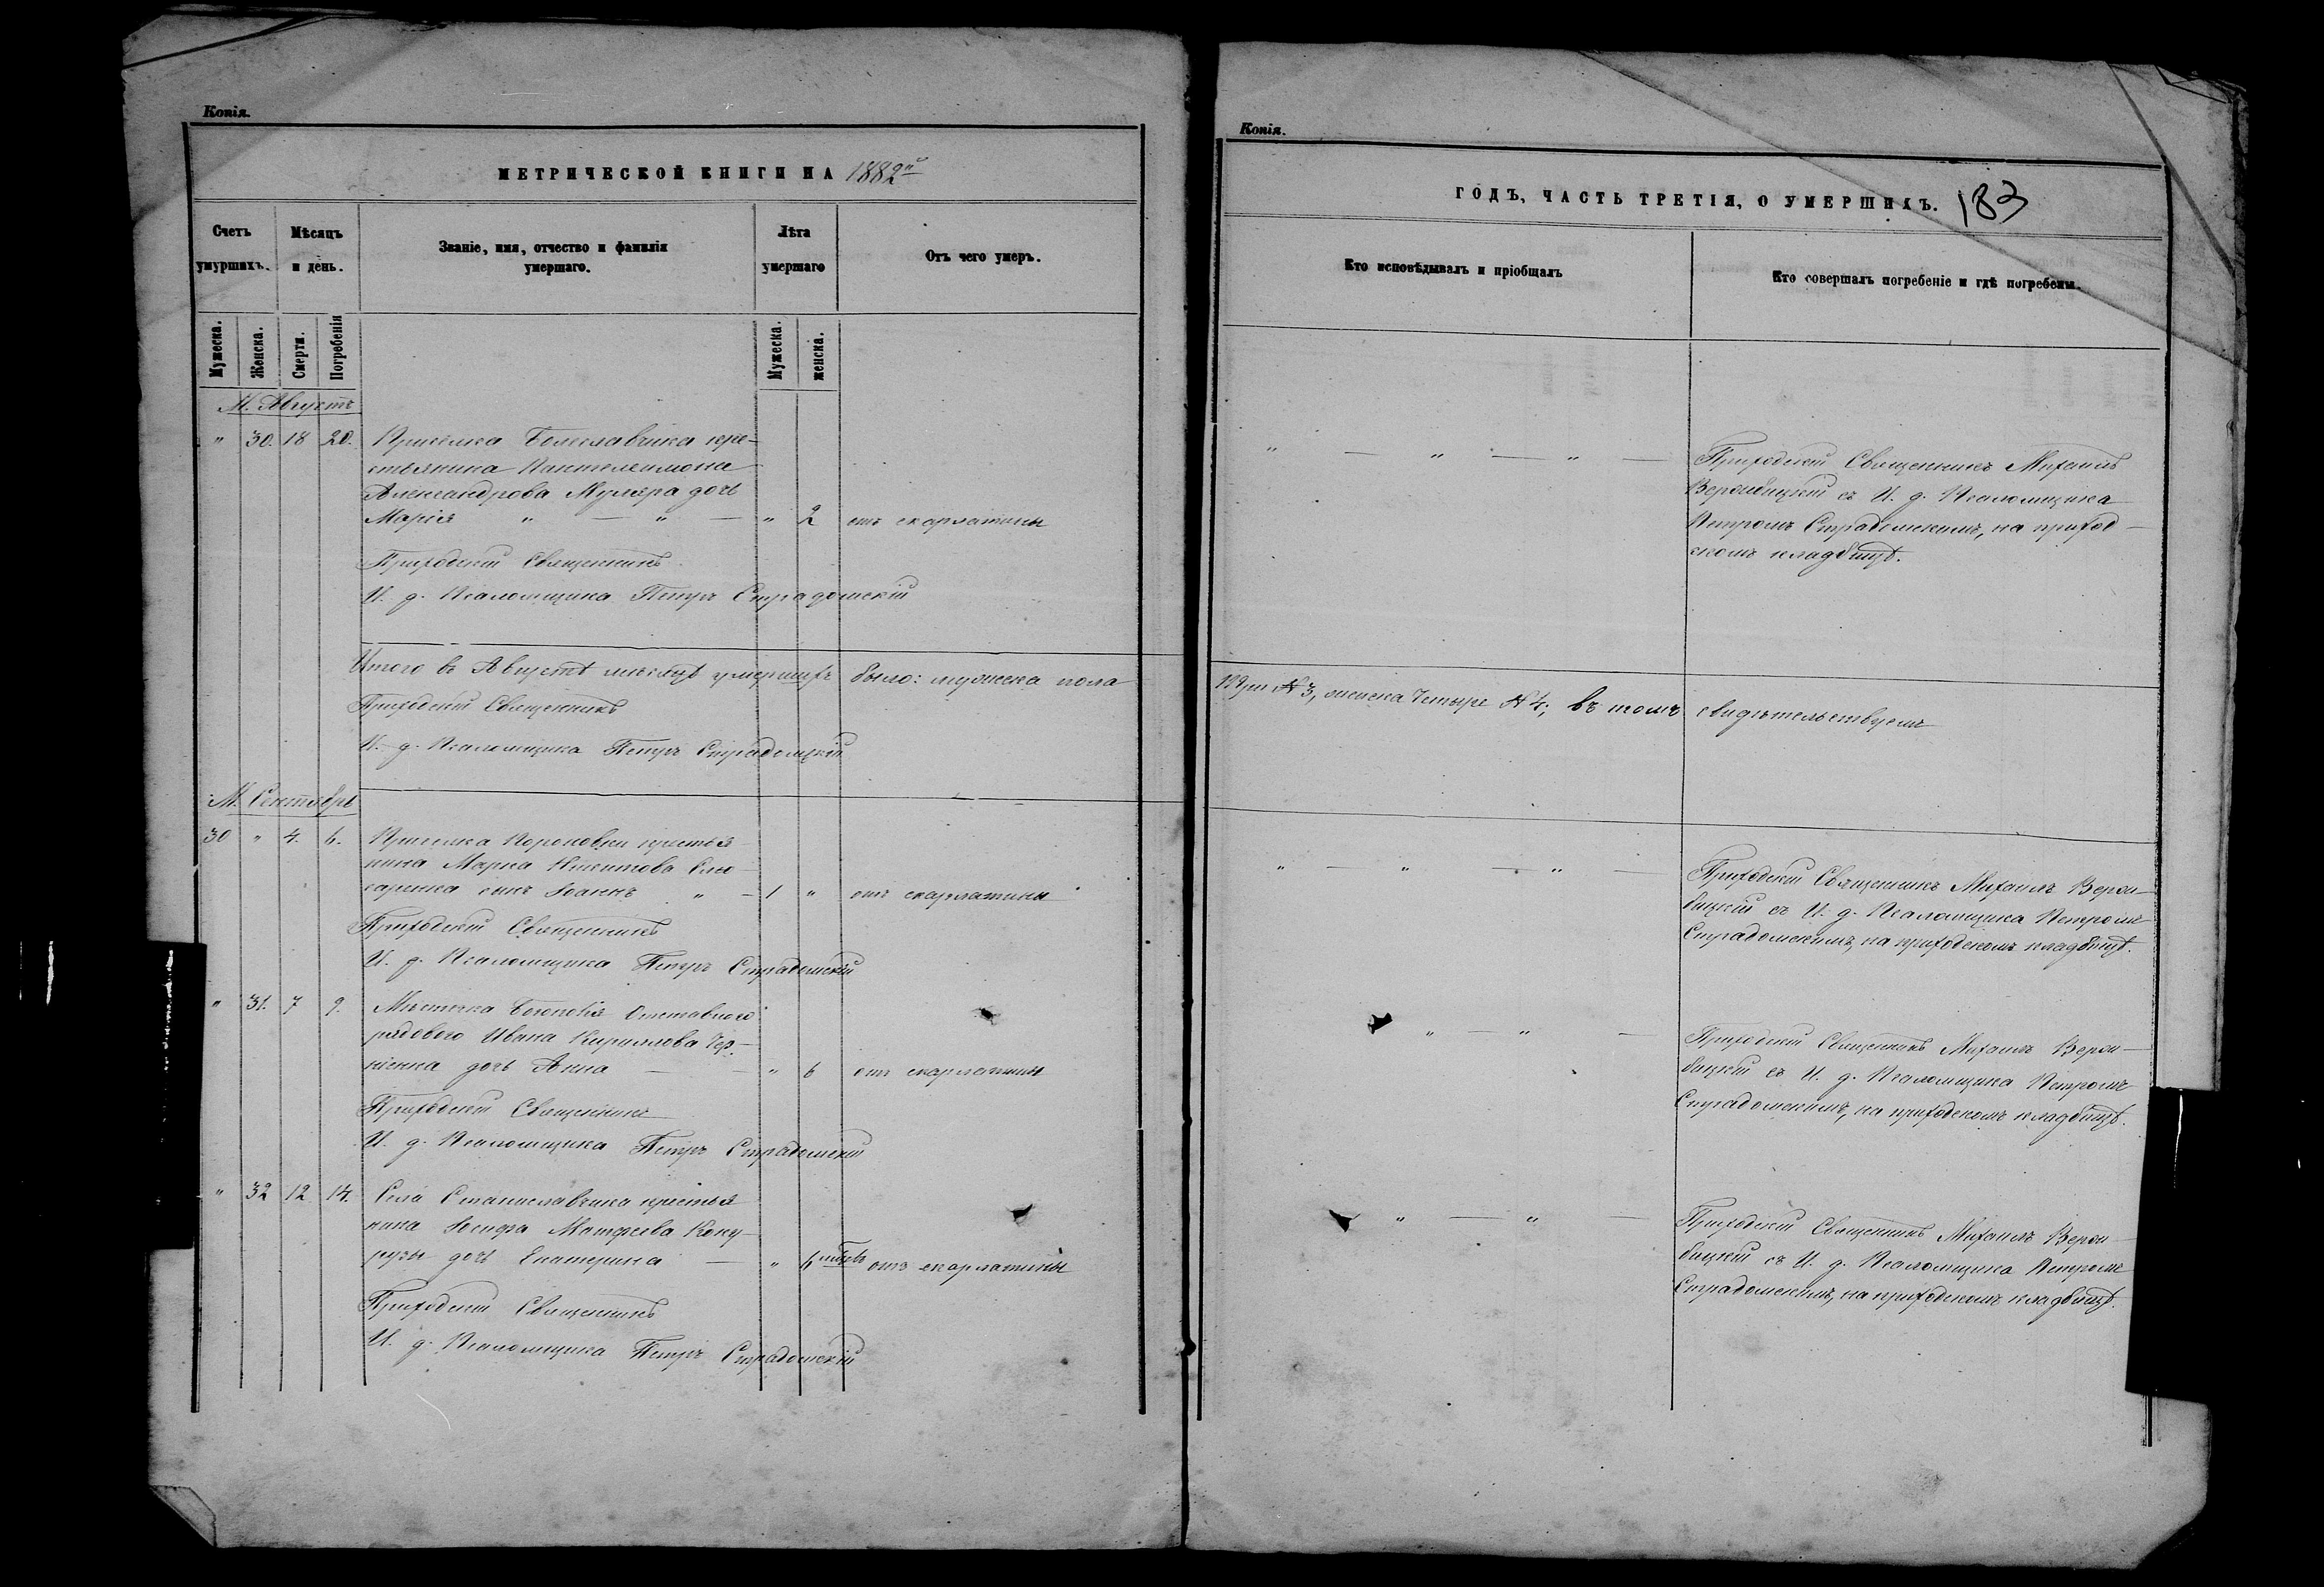 Копія.
МЕТРИЧЕСКОЙ КНИГИ НА 1882й
Счетъ умуршихъ.
Мѣсяцъ и день.
Званіе, имя, отчество и фамилія умершаго.
Лѣта умершаго
Отъ чего умеръ.
Мужеска.
Женска.
Смерти.
Погребенія
Мужеска.
женска.
М. Августъ
" 30. 18 20. Приселка Болеславчика кре-
стьянина Пантелеимона
Александрова Муляра дочь
Марія " — " — " 2 отъ скарлатины
Приходскій Священникъ
И. д. Псаломщика Петръ Страдомскій
Итого въ Августѣ мѣсяцѣ умершихъ было: мужеска пола
Приходскій Священникъ
И. д. Псаломщика Петръ Страдомскій
М. Сентябрь
30 " 4. 6. Приселка крестья
нина Марка
сынъ Іоаннъ " — 1 " отъ скарлатины
Приходскій Священникъ
И. д. Псаломщика Петръ Страдомскій
" 31. 7 9. Мѣстечка Отставного
рядового Ивана Кириллова Чер-
ніенка дочь Анна — — " 6 отъ скарлатины
Приходскій Священникъ
И. д. Псаломщика Петръ Страдомскій
" 32 12 14. Села Станиславчика крестья
нина Іосифа Матфеева Куку-
рузы дочь Екатерина — " 6 мѣсяц. отъ скарлатины
Приходскій Священникъ
И. д. Псаломщика Петръ Страдомскій
Копія.
ГОДЪ, ЧАСТЬ ТРЕТІЯ, О УМЕРШИХЪ. 183
Кто исповѣдывалъ и пріобщалъ
Кто совершалъ погребеніе и гдѣ погребены.
" — " — " — Приходскій Священникъ Михаилъ
Вербицкій съ И. д. Псаломщика
Петромъ Страдомскимъ, на приход-
скомъ кладбищѣ.
№ 3, женска Четыре № 4; въ томъ свидѣтельствуемъ
" — " — " — Приходскій Священникъ Михаилъ Верби-
бицкій съ И. д. Псаломщика Петромъ
Страдомскимъ, на приходскомъ кладбищѣ.
" — " — Приходскій Священникъ Михаилъ Верби-
бицкій съ И. д. Псаломщика Петромъ
Страдомскимъ, на приходскомъ кладбищѣ.
" — " — Приходскій Священникъ Михаилъ Верби-
бицкій съ И. д. Псаломщика Петромъ
Страдомскимъ, на приходскомъ кладбищѣ.